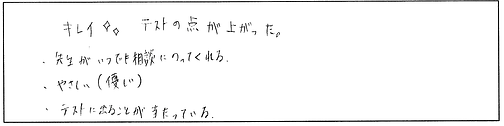 キレイ✧✧ テストの点が上がった。
・先生がいつでも相談にのってくれる.
・やさしい(優しい)
・テストに出ることがまとまっている.